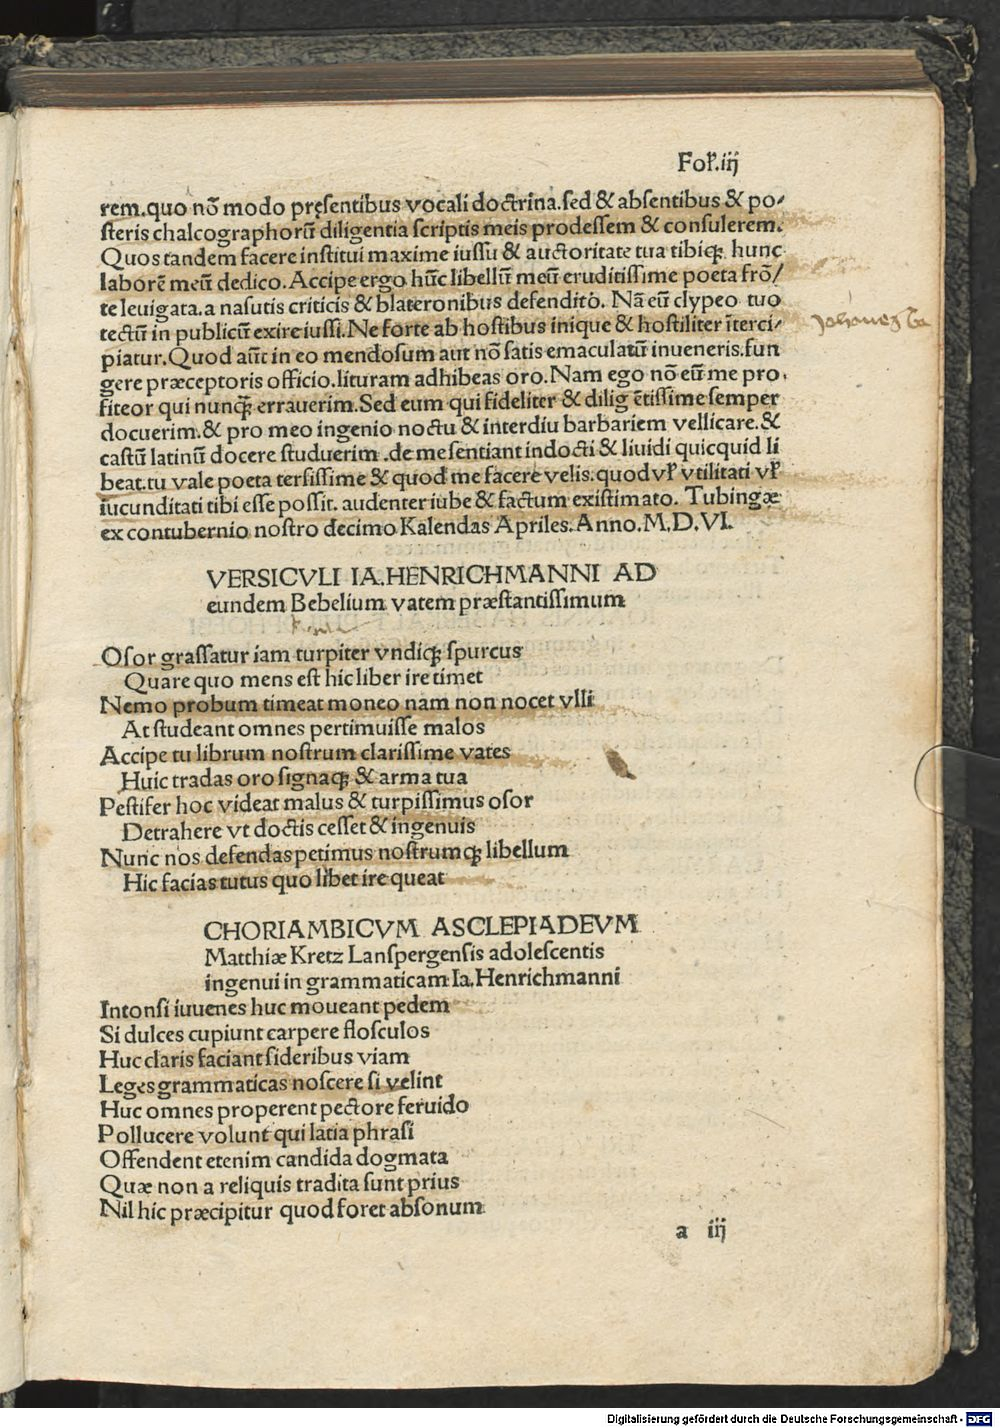 Fol̕.iij
rem.quo nō modo pręsentibus vocali doctrina.sed & absentibus & po⸗
steris chalcographorū diligentia scriptis meis prodessem & consulerem.
Quos tandem facere institui maxime iussu & auctoritate tua tibiqꝫ hunc
laborē meū dedico. Accipe ergo hūc libellū meū eruditissime poeta frō⸗
te leuigata. a nasutis criticis & blateronibus defendito. Nā eū clypeo tuo
tectū in publicū exire iussi. Ne forte ab hostibus inique & hostiliter īterci⸗
piatur. Quod aūt in eo mendosum aut nō satis emaculatū inueneris.fun
gere præceptoris officio.lituram adhibeas oro. Nam ego nō eū me pro.
fiteor qui nunqꝫ̄ errauerim. Sed eum qui fideliter & diligētissime semper
docuerim.& pro meo ingenio noctu & interdiu barbariem vellicare.&
castū latinū docere studuerim .de me sentiant indocti & liuidi quicquid li
beat.tu vale poeta tersissime & quod me facere velis.quod vl̕ vtilitati vl̕
iucunditati tibi esse possit. audenter iube & factum existimato. Tubingæ
ex contubernio nostro decimo Kalendas Apriles. Anno. M.D.VI.
VERSICVLI IA.HENRICHMANNI AD
eundem Bebelium vatem præstantissimum
Osor grassatur iam turpiter vndiqꝫ spurcus
Quare quo mens est hic liber ire timet
Nemo probum timeat moneo nam non nocet vlli
At studeant omnes pertimuisse malos
Accipe tu librum nostrum clarissime vates
Huic tradas oro signaqꝫ & arma tua
Pestifer hoc videat malus & turpissimus osor
Detrahere vt doctis cesset & ingenuis
Nunc nos defendas petimus nostrumqꝫ libellum
Hic facias tutus quo libet ire queat
CHORIAMBICVM ASCLEPIADEVM
Matthiæ Kretz Lanspergensis adolescentis
ingenui in grammaticam Ia. Henrichmanni
Intonsi iuuenes huc moueant pedem
Si dulces cupiunt carpere flosculos
Huc claris faciant sideribus viam
Leges grammaticas noscere si velint
Huc omnes properent pectore feruido
Pollucere volunt qui latia phrasi
Offendent etenim candida dogmata
Quæ non a reliquis tradita sunt prius
Nil hic præcipitur quod foret absonum
a iij
Digitalisierung gefördert durch die Deutsche Forschungsgemeinschaft - DFG